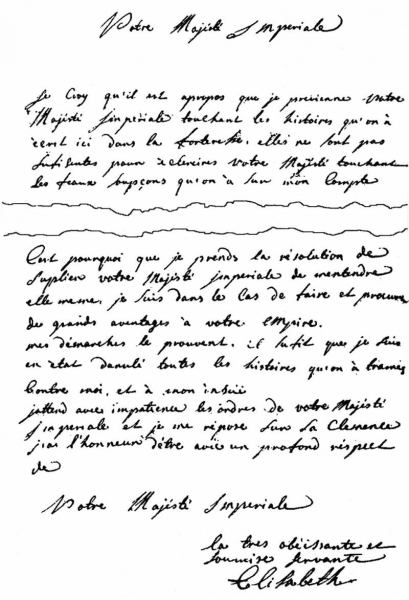 Votre Majésté Imperiale
Je Croy qu'il est apropos que je previenne Votre
Majésté Jmpériale touchant les histoires qu'on à
écrit ici dans la forteresse, elles ne sont pas
sufisentes pour éclereires Votre Majésté touchant
les feaux supçons qu'on à sur mon Compte
C'est pourquoi que je prends la résolution de
suplier votre Majésté jmperiale de mentendre
elle meme, je suis dans le Cas de faire et procurer
de grands aventages à votre Empire.
mes démarches le prouvent. il sufit que je suis
en état danulé toutes les histoires qu'on à tramés
Contre moi, et à mon insue
jattend avec impatience les ordres de votre Majésté
jmperiale et je me répose sur sa Clemence
j'ai l'honneur d'être avec un profond réspect
de
Votre Majésté Imperiale
la tres obéissante et
soumise servante
Elisabeth